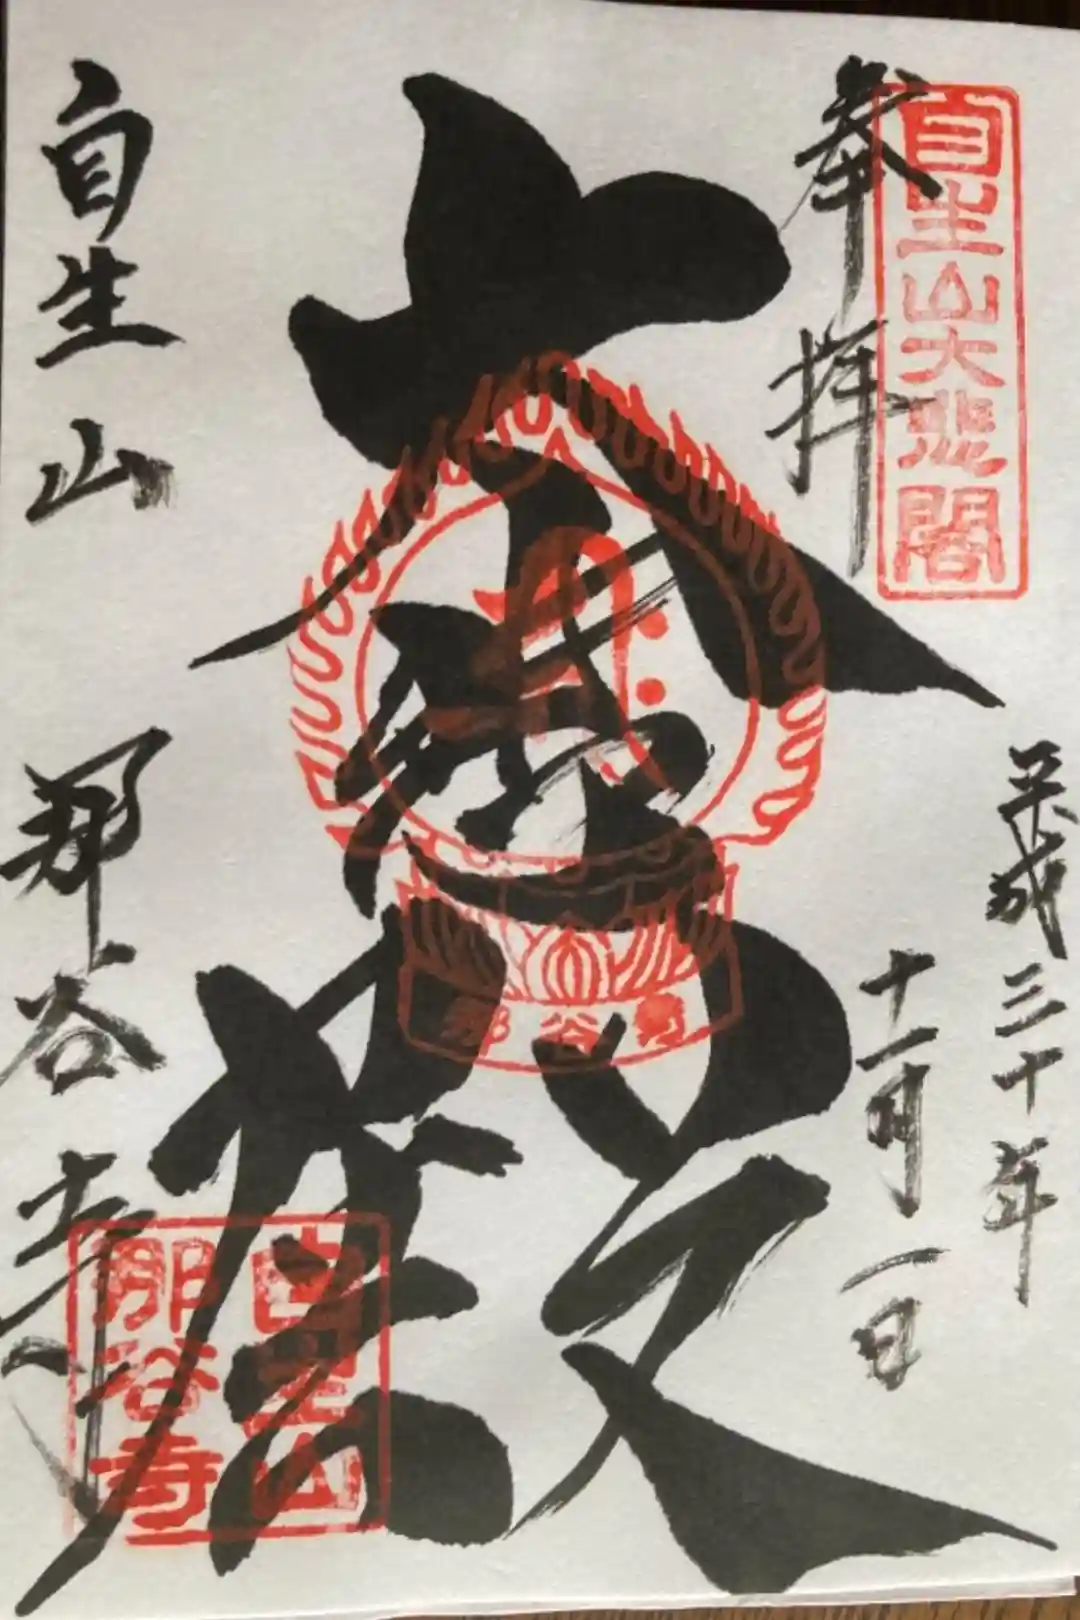 自生山大悲閣
奉拝
平成三十年
十一月一日
大悲殿
那谷寺
自生山
那谷寺
自生山
那谷寺